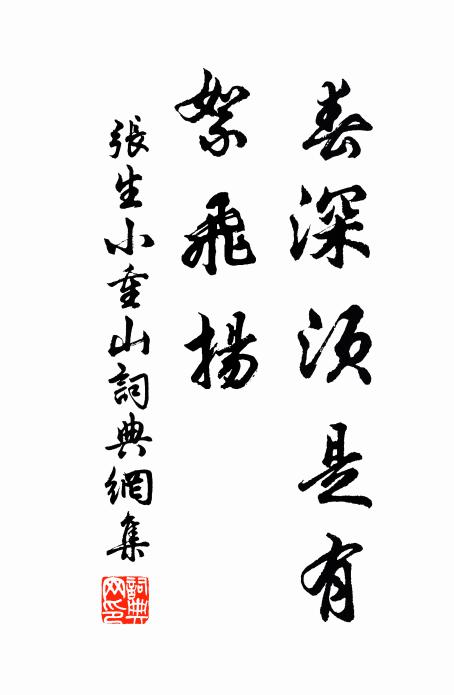 春深須是有
絮飛揚
張生小重山詞典網集
詞典网印